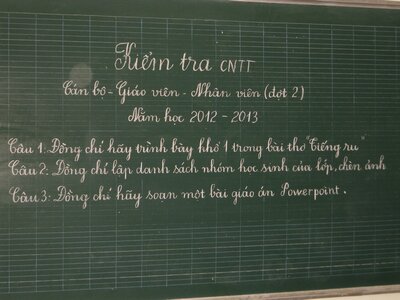 Kiểm tra CNTT
Cán bộ - Giáo viên - Nhân viên (đợt 2)
Năm học 2012 - 2013
Câu 1: Đồng chí hãy trình bày khổ 1 trong bài thơ "Tiếng ru"
Câu 2: Đồng chí lập danh sách nhóm học sinh của lớp, chèn ảnh
Câu 3: Đồng chí hãy soạn một bài giáo án Powerpoint.